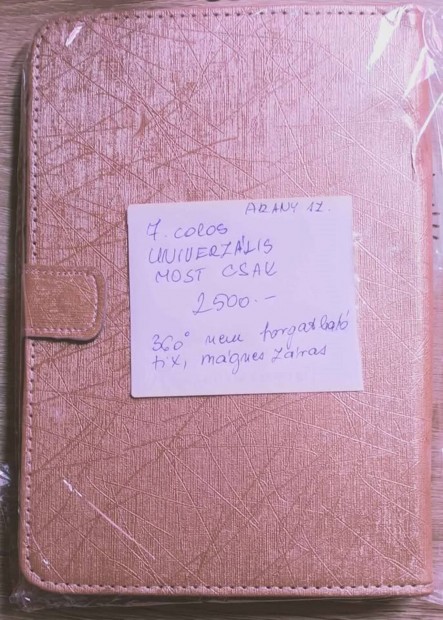 ARANY SZ.
7. COLOS
UNIVERZÁLIS
MOST CSAK
2500.-
360° nem forgatható
fix, mágnes zárras